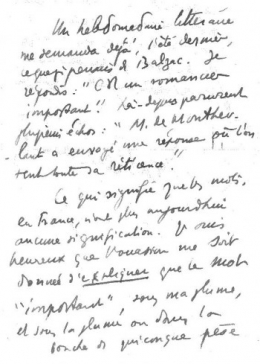 Un hebdomadaire littéraire
me demanda déjà, l'été dernier,
ce que je pensais de Balzac. Je
répondis : "C'est un romancier
important". Là-dessus parurent
plusieurs échos : "M. de Monther-
lant a envoyé une réponse où l'on
sent toute sa réticence."
Ce qui signifie que les mots,
en France, n'ont plus aujourd'hui
aucune signification. Je suis
heureux que l'occasion me soit
donnée d'expliquer que le mot
"important", sous ma plume,
et sous la plume ou dans la
bouche de quiconque pèse